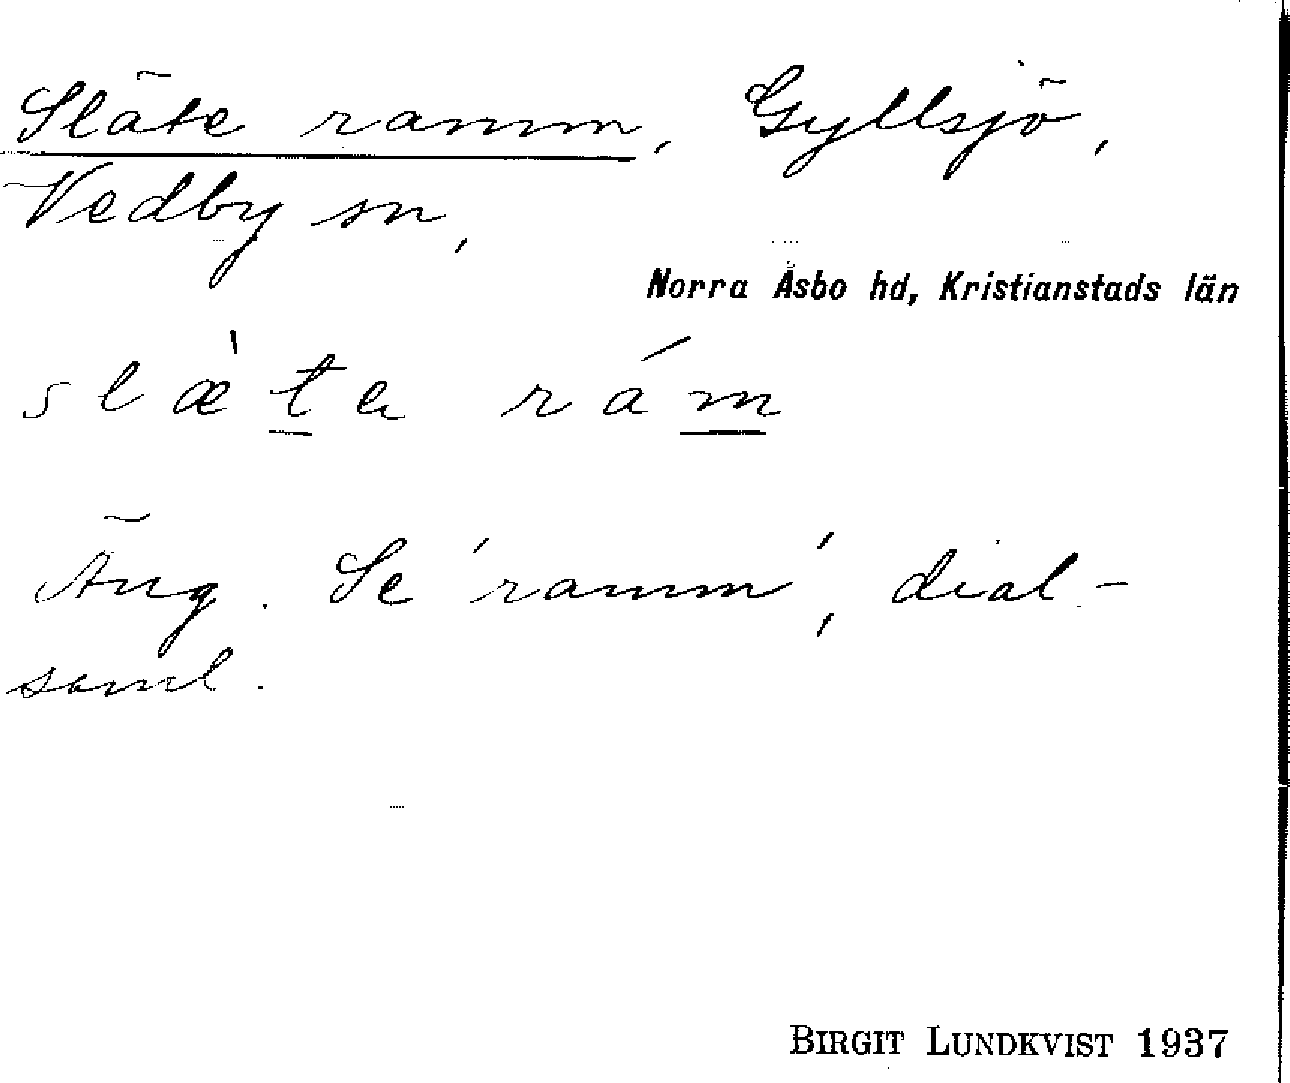 Släte ramm, Gyllsjö,
Vedby sn,
Norra Åsbo hd, Kristianstads län
slæ̀te rám
Äng. Se 'ramm', dial-
saml.
BIRGIT LUNDKVIST 1937